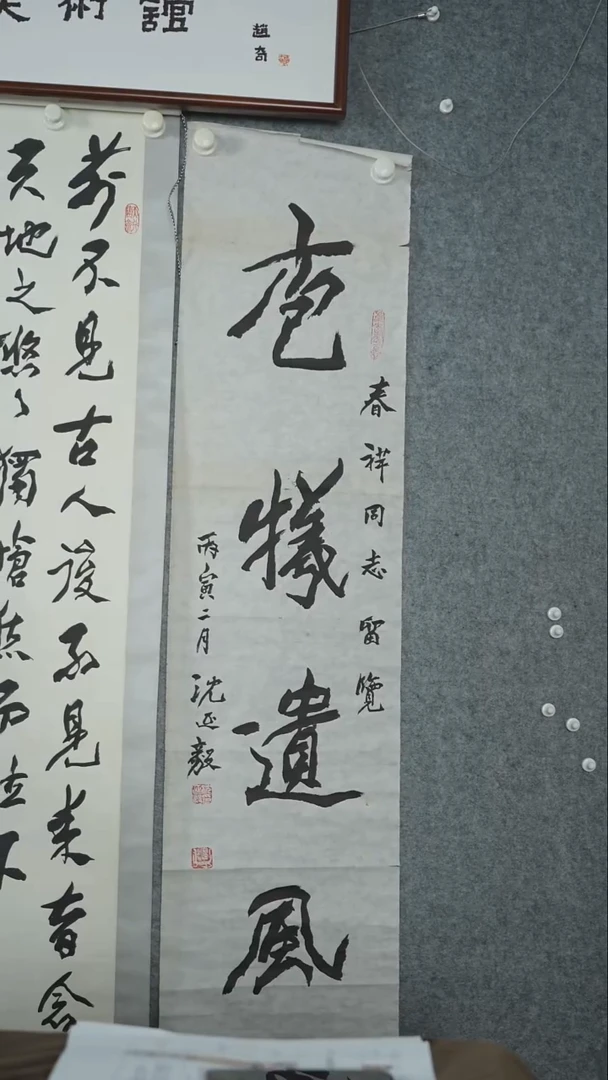 術
趙奇
春祥同志留覽
庖犧遺風
丙寅二月 沈延毅
前不見古人後不見来者念
天地之悠々獨愴然而泣下